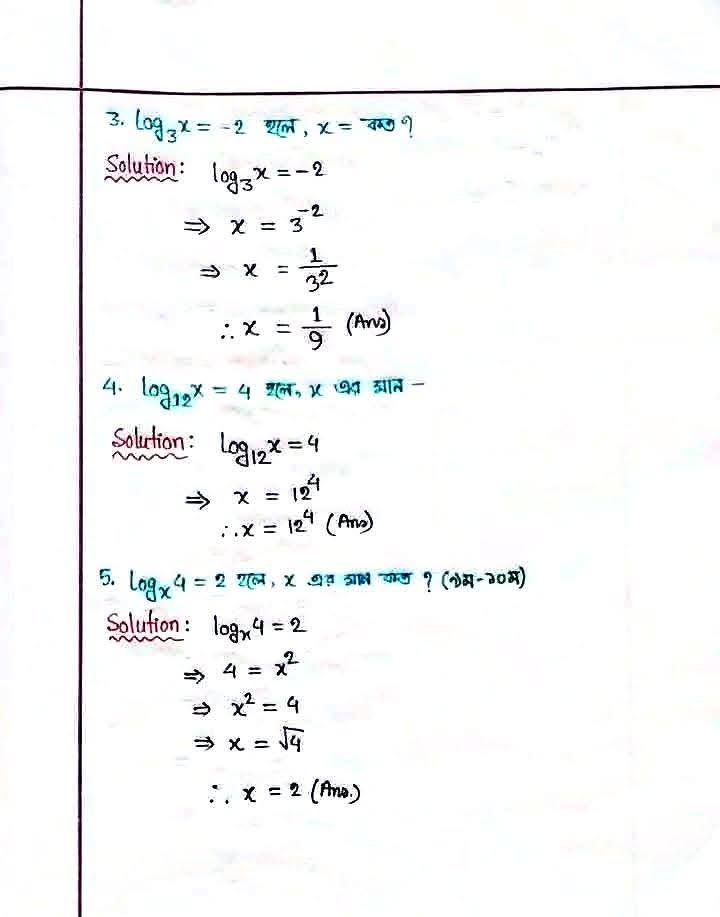 3. log₃x = -2 হলে, x = কত?
Solution: log₃x = -2
⇒ x = 3⁻²
⇒ x = 1/3²
∴ x = 1/9 (Ans)
4. log₁₂x = 4 হলে, x এর মান –
Solution: log₁₂x = 4
⇒ x = 12⁴
∴ x = 12⁴ (Ans)
5. logₓ4 = 2 হলে, x এর মান কত ? (৯ম-১০ম)
Solution: logₓ4 = 2
⇒ 4 = x²
⇒ x² = 4
⇒ x = √4
∴ x = 2 (Ans.)